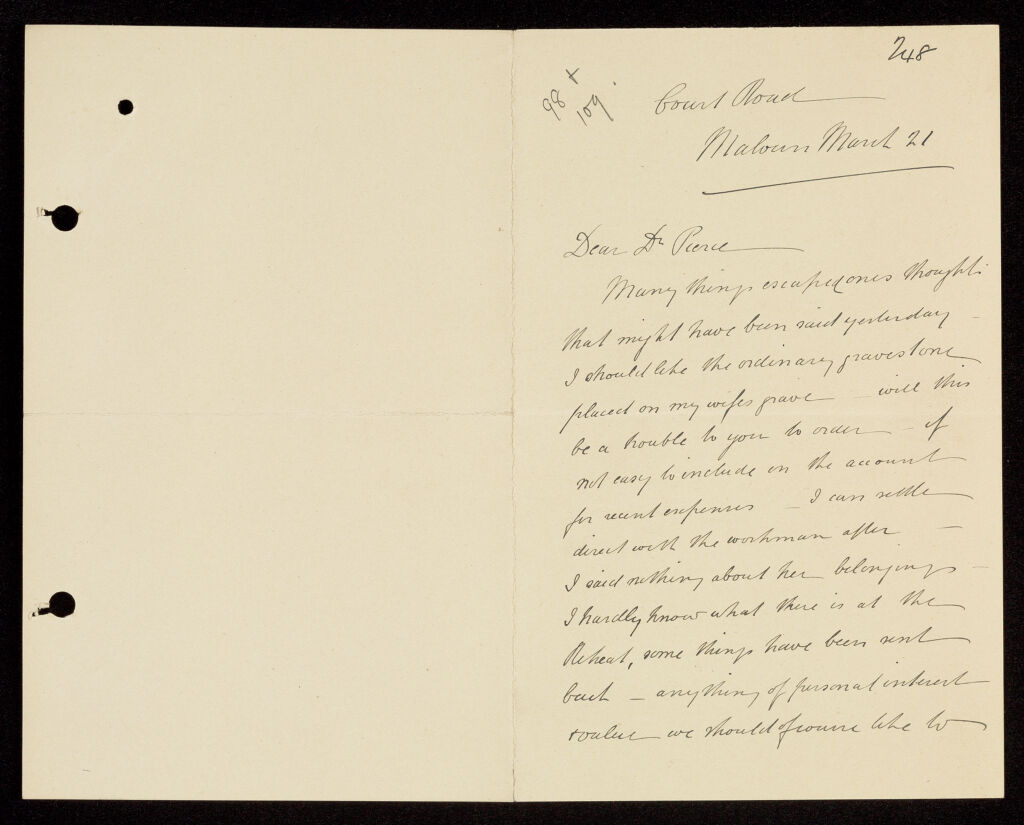 248
98 x
109.
Court Road
Malvern March 21
Dear Dr Pierce
Many things escaped ones thoughts
that might have been said yesterday -
I should like the ordinary gravestone
placed on my wifes grave - will this
be a trouble to you to order - if
not easy to include in the account
for recent expenses - I can settle
direct with the workman after -
I said nothing about her belongings -
I hardly know what there is at the
Retreat, some things have been sent
back - anything of personal interest
or value we should of course like to